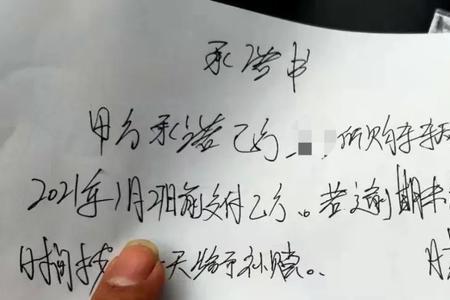 承诺书
甲方承诺乙方 所购车辆
2021年1月2日前交付乙方。若逾期未
一天给予补贴。